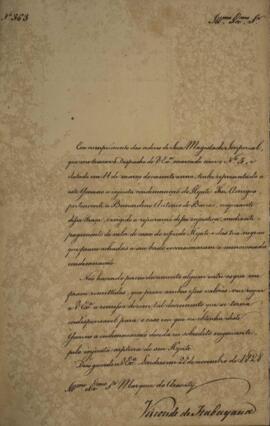 Nº 363
Illmo. Exmo. Sr.
Em cumprimento das ordens de Sua Magestade Imperial,
que me transmitte o despacho de V. Exa. marcado com o Nº 5, e
datado em 11 de março do corrente anno, tenho representado a
este Governo a injusta condemnação do Hyate
pertencente a Bernardino Antonio de negociante
desta praça, exigindo a reparação desta injustiça, mediante o
pagamento do valor do casco do referido Hyate, e dos tres negros
que foram achados a seu bordo
condemnação.
Não havendo porem documento algum entre os que me
foram remettidos, que prove ambos esses valores, vou rogar
a V. Exa. a remessa de um tal documento, que se torna
indispensavel para o caso em que se obtenha deste
Governo a indemnisação devida ao sobredito negociante
pela injusta captura do seu Hyate.
Deus guarde a V. Exa. Londres em 22 de novembro de 1828
Illmo. Exmo. Sr. Marquez do Aracaty
Visconde de Itabayana